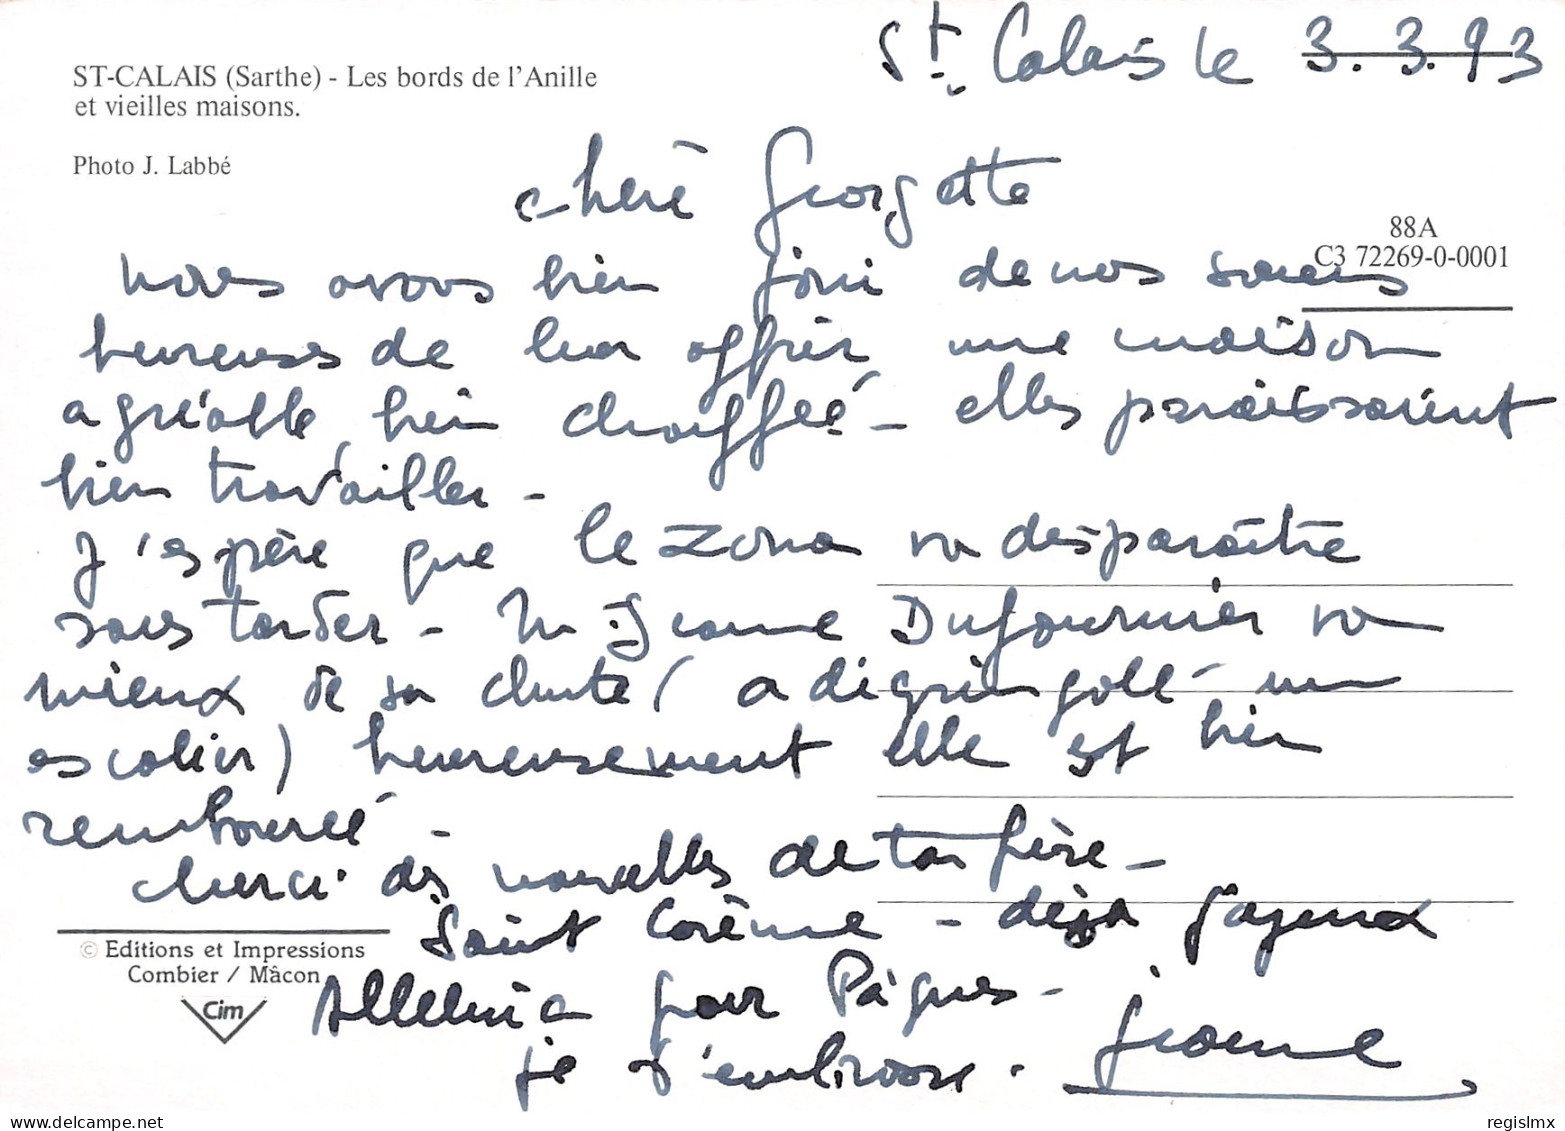 St. Calais le 3.3.93
ST-CALAIS (Sarthe) - Les bords de l'Anille
et vieilles maisons.
Photo J. Labbé
chère Georgette
88A
C3 72269-0-0001
nous avons bien joui de nos soeurs
heureuses de leur offrir une maison
agréable, bien chauffée - elles paraissaient
bien travailler -
J'espère que le zona va disparaître
sans tarder - M. Jeanne Dufournier va
mieux de sa chute (a dégringolé un
escalier) heureusement elle est bien
remboursé -
Merci des nouvelles de ton frère -
Saint Carême - déjà joyeux
Alleluia pour Pâques -
je t'embrasse. Jeanne
© Editions et Impressions
Combier / Mâcon
Cim
regislmx
www.delcampe.net